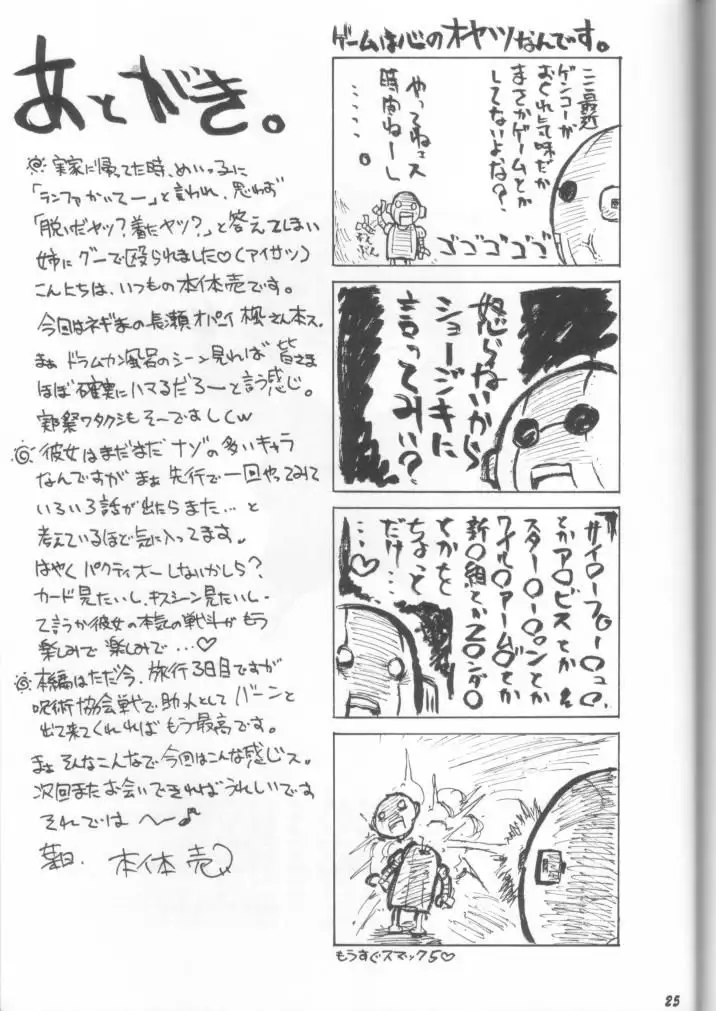 あとがき。
実家に帰ってた時、めいっ子に
「ランファかいてー」と言われ、思わず
「脱いだヤツ?着たヤツ?」と答えてしまい
姉にグーで殴られました♡(アイサツ)
こんにちは、いつもの本体売です。
今回はネギまの長瀬オパーイ楓さん本ス。
まぁドラムカン風呂のシーン見れば皆さま
ほぼ確実にハマるだろーと言う感じ。
実際ワタクシもそーですしくw
彼女はまだまだナゾの多いキャラ
なんですがまぁ先行で一回やってみて
いろいろ話が出たらまた…と
考えているほど気に入ってます。
はやくパクティオーしないかしら?
カード見たいし、キスシーン見たいし、
て言うか彼女の本気の戦斗がもう
楽しみで楽しみで…♡
本編はただ今、旅行3日目ですが
呪術協会戦で助っ人としてバーンと
出て来てくれればもう最高です。
まぁそんなこんなで今回はこんな感じス。
次回またお会いできればうれしいです
それでは〜♪
本体売
ゲームは心のオヤツなんです。
ここ最近
ゲンコーが
おくれ気味だか
まさかゲームとか
してないよな?
やってねェス
時間ねーし
……。
ゴゴゴゴゴ
怒らないから
ショージキに
言ってみい?
サイ○ーフ○ー○ュ○、
とかア○ビスとか
スター○ー○ンとか
ワイル○アーム○とか
新○組とかZ○ンダ○
とかをと
ちょっと
だけ…
…♡
もうすぐスマック5♡
25